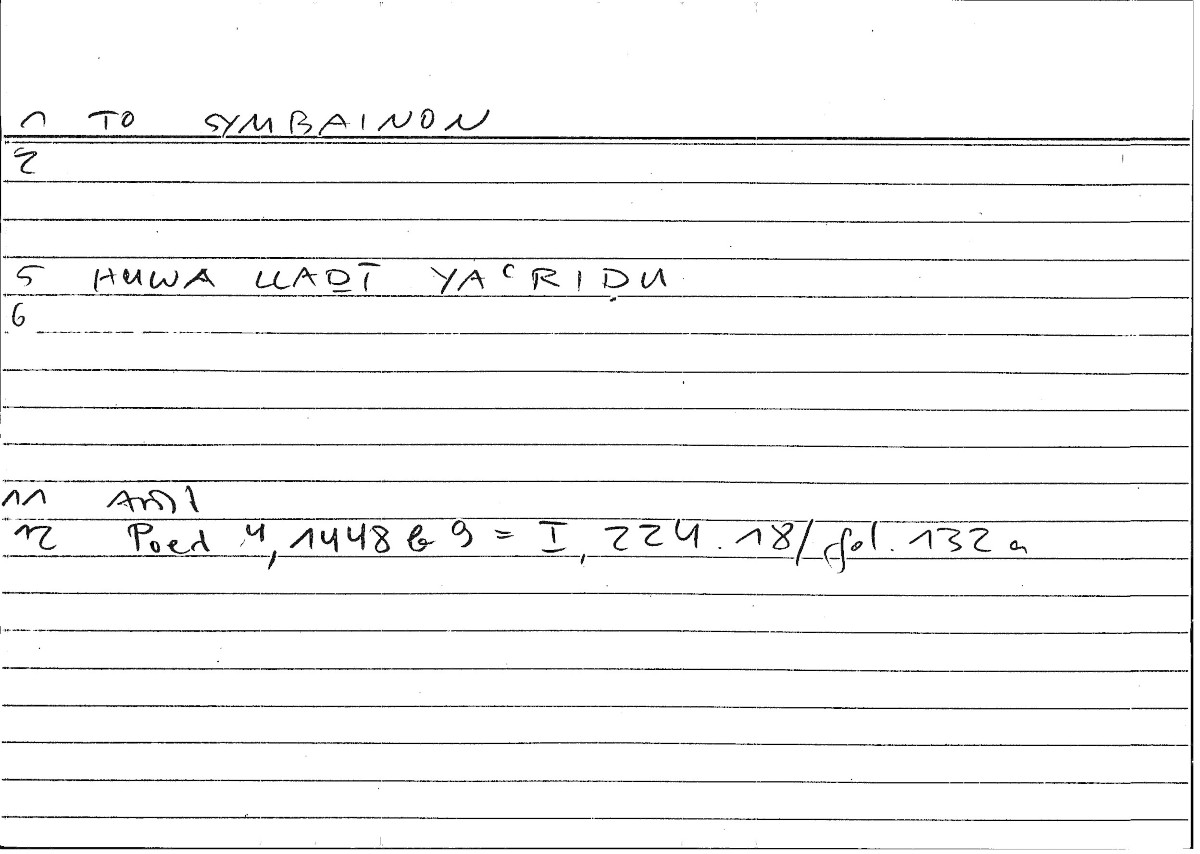 1 TO SYMBAINON
2
5 HUWA LLAḎĪ YAʿRIḌU
6
11 Arist
12 Poet 4, 1448 b 9 = I, 224.18/fol. 132 a